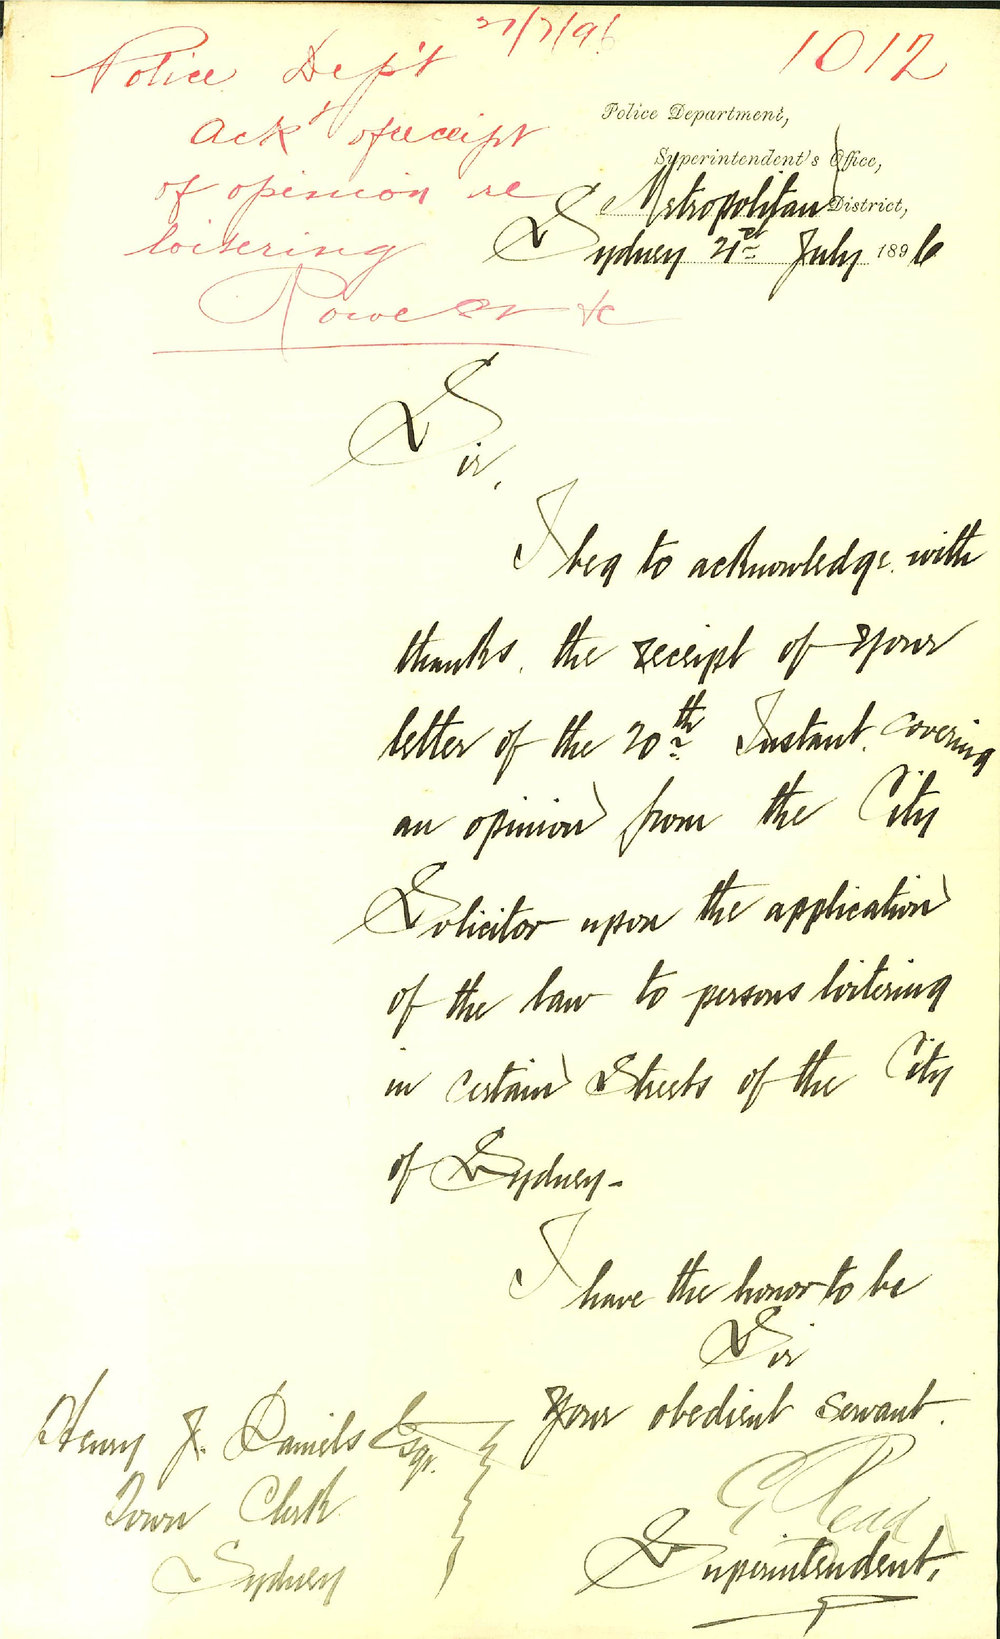 27/7/96
1012
Police Dep't
Ack't of receipt
of opinion re
loitering
Rowe St &c
Police Department,
Superintendent's Office,
Metropolitan District,
Sydney 21st July 1896
Sir,
I beg to acknowledge with
thanks, the receipt of your
letter of the 20th Instant, covering
an opinion from the City
Solicitor upon the application
of the law to persons loitering
in certain Streets of the City
of Sydney-
I have the honor to be
Sir
Your obedient servant.
Read
Superintendent.
Henry J. Daniels Esqr.
Town Clerk
Sydney